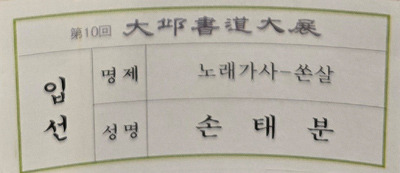 第10回 大邱書道大展
입선
명제 노래가사-쏜살
성명 손태분